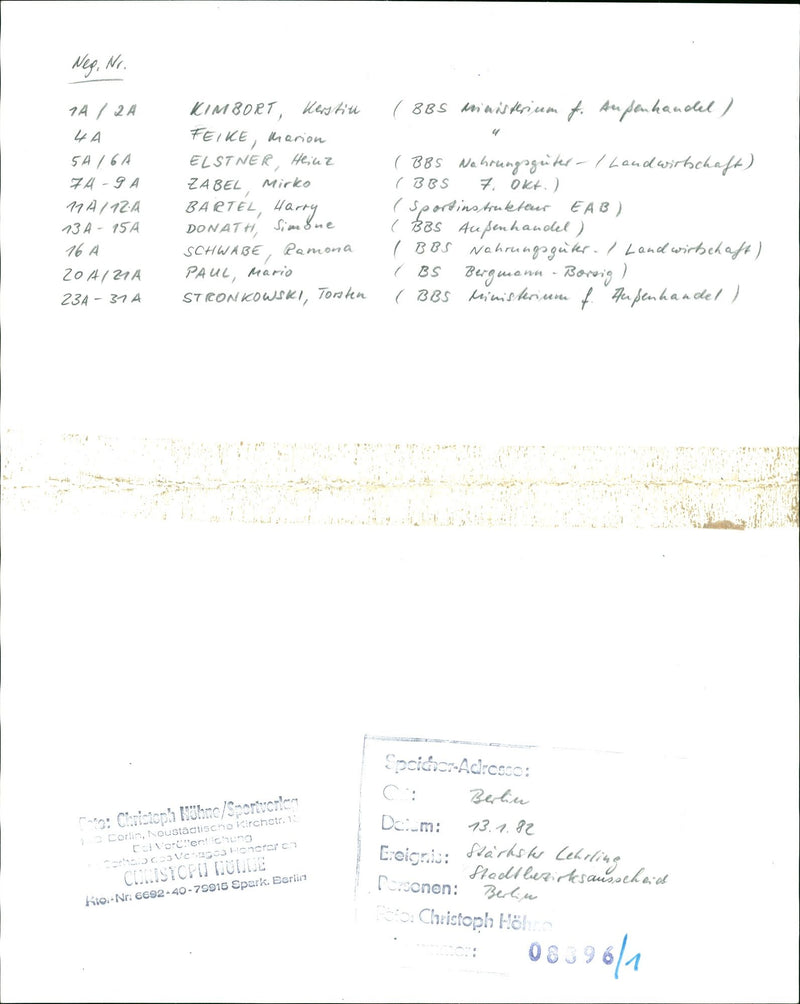 Neg. Nr.
1A / 2A KIMBORT, Kerstin ( BBS Ministerium f. Außenhandel )
4A FEIKE, Marion "
5A / 6A ELSTNER, Heinz ( BBS Nahrungsgüter- / Landwirtschaft)
7A - 9A ZABEL, Mirko ( BBS 7. Okt. )
11A / 12A BARTEL, Harry ( Sportinstrukteur EAB )
13A - 15A DONATH, Simone ( BBS Außenhandel )
16A SCHWABE, Ramona ( BBS Nahrungsgüter- / Landwirtschaft)
20A / 21A PAUL, Mario ( BS Bergmann-Borsig )
23A - 31A STRONKOWSKI, Torsten ( BBS Ministerium f. Außenhandel )
Foto: Christoph Höhne/Sportverlag
Berlin, Neustädtische Kirchstr. 15
Bei Veröffentlichung
des Verlages Honorar an
CHRISTOPH HÖHNE
Kto.-Nr. 6692-40-79915 Spark. Berlin
Speicher-Adresse:
Ort: Berlin
Datum: 13.1.82
Ereignis: Stärkster Lehrling
Stadtbezirksausscheid
Personen: Berlin
Foto: Christoph Höhne
08396/1